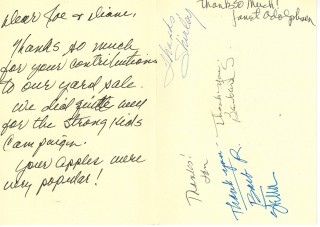 Dear Joe & Diane,
Thanks so much
for your contributions
to our yard sale.
We did quite well
for the Strong Kids
Campaign.
Your apples were
very popular!
Thanks
Shirley
Thanks So Much!
Janet
Thanks!
Jan
Thank you
Barbara S
Thank you -
Barb R.